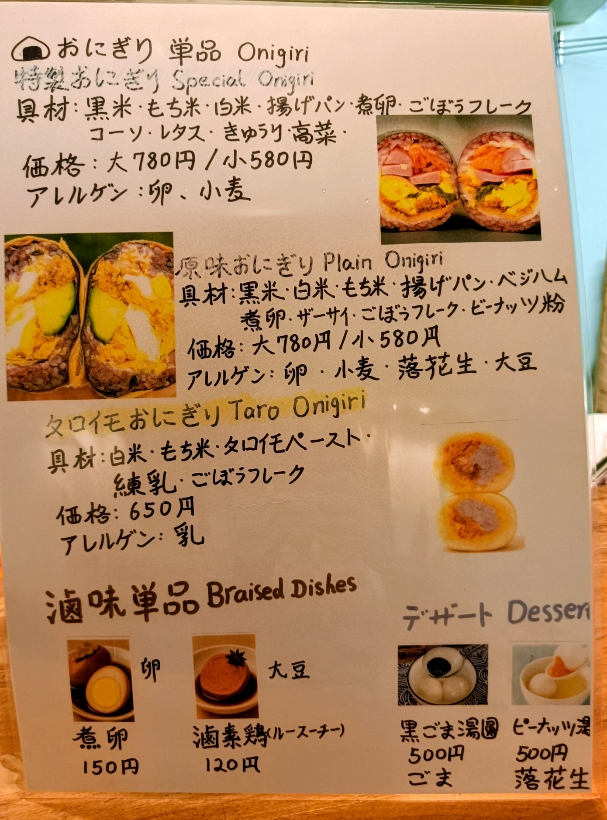 おにぎり 単品 Onigiri
特製おにぎり Special Onigiri
具材:黒米・もち米・白米・揚げパン・煮卵・ごぼうフレーク
コーソ・レタス・きゅうり・高菜・
価格:大780円/小580円
アレルゲン:卵、小麦
原味おにぎり Plain Onigiri
具材:黒米・白米・もち米・揚げパン・ベジハム
煮卵・ザーサイ・ごぼうフレーク・ピーナッツ粉
価格:大780円/小580円
アレルゲン:卵・小麦・落花生・大豆
タロイモおにぎり Taro Onigiri
具材:白米・もち米・タロイモペースト・
練乳・ごぼうフレーク
価格:650円
アレルゲン:乳
滷味単品 Braised Dishes
卵
煮卵
150円
大豆
滷素鶏(ルースーチー)
120円
デザート Dessert
黒ごま湯圓
500円
ごま
ピーナッツ湯
500円
落花生